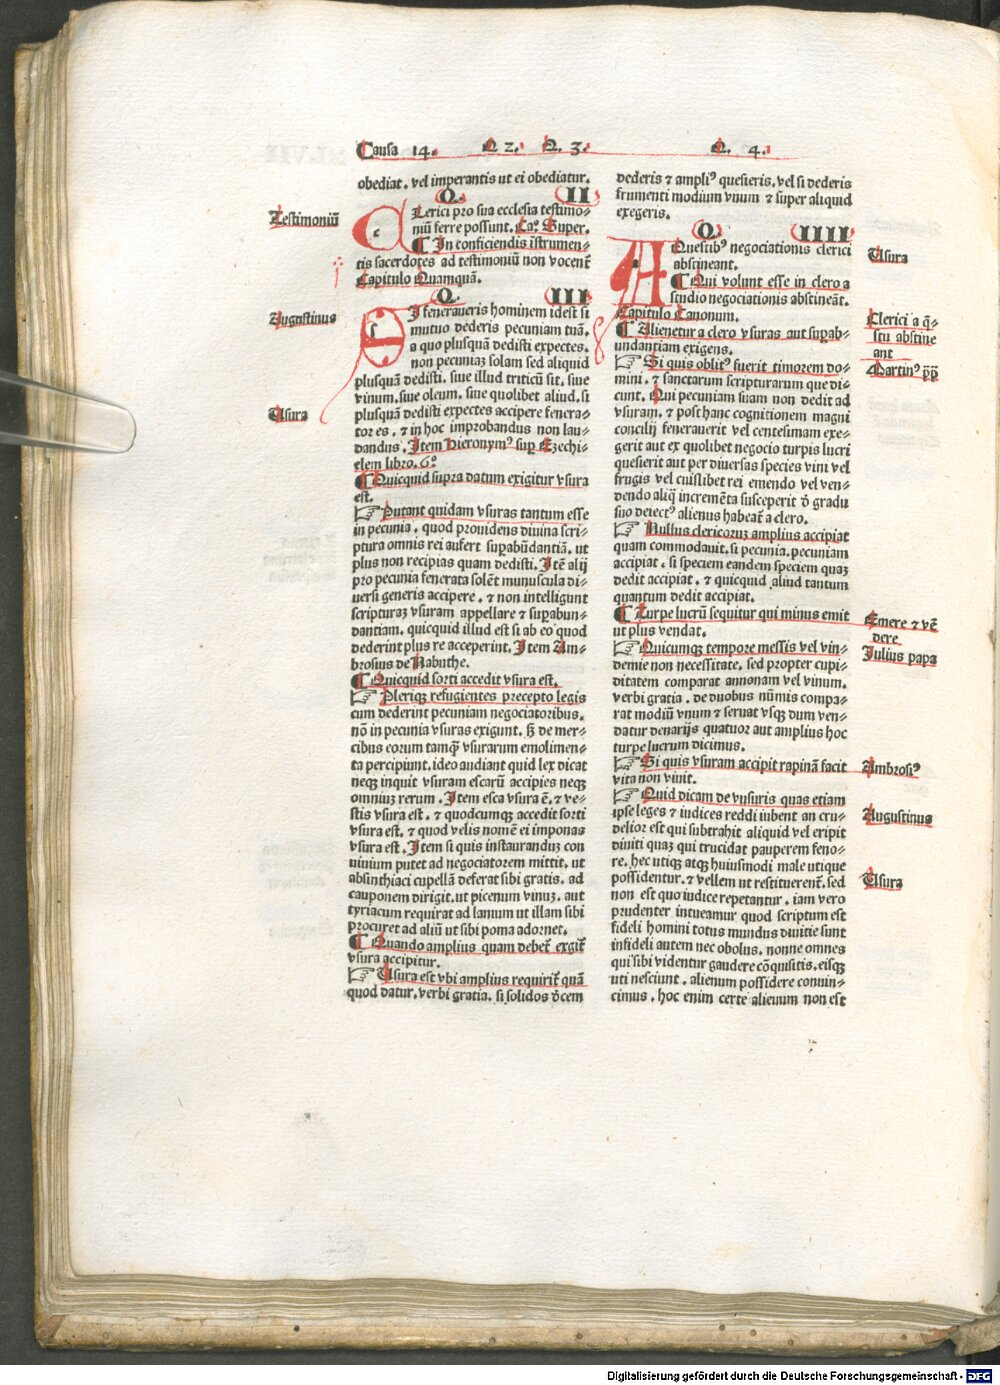 Causa 14. Q 2. Q. 3. Q. 4.
obediat. vel imperantis ut ei obediatur.
Q. II
Testimoniū
CLerici pro sua ecclesia testimo⸗
niū ferre possunt. Ca⁰. Super.
¶ In conficiendis īstrumen⸗
tis sacerdotes ad testimoniū non vocent̄
Capitulo Quamquā.
Q. III
Augustinus
SI feneraueris hominem idest si
mutuo dederis pecuniam tuā.
a quo plusquā dedisti expectes.
non pecuniaꝫ solam sed aliquid
plusquā dedisti, siue illud triticū sit, siue
vinum. siue oleum. siue quolibet aliud. si
Usura
plusquā dedisti expectes accipere fenera⸗
tor es. ⁊ in hoc improbandus non lau⸗
dandus. Item hieronym⁹ suꝑ Ezechi⸗
elem libro. 6⁰
¶ Quicquid supra datum exigitur vsura
est.
☞ Putant quidam vsuras tantum esse
in pecunia. quod prouidens diuina scri⸗
ptura omnis rei aufert supabūdantiā. ut
plus non recipias quam dedisti. Itē alij
pro pecunia fenerata solēt munuscula di⸗
uersi generis accipere. ⁊ non intelligunt
scripturaꝫ vsuram appellare ⁊ supabun⸗
dantiam. quicquid illud est si ab eo quod
dederint plus re acceperint. Item Am⸗
brosius de Nabuthe.
¶ Quicquid sorti accedit vsura est.
☞ Pleriqꝫ refugientes precepto legis
cum dederint pecuniam negociatoribus.
nō in pecunia vsuras exigunt. sꝫ de mer⸗
cibus eorum tamqꝫ vsurarum emolimen⸗
ta percipiunt. ideo audiant quid lex dicat
neqꝫ inquit vsuram escarū accipies neqꝫ
omniuꝫ rerum. Item esca vsura ē. ⁊ ve⸗
stis vsura est. ⁊ quodcumqꝫ accedit sorti
vsura est. ⁊ quod velis nomē ei imponas
vsura est. Item si quis instauranduꝫ con
uiuium putet ad negociatorem mittit. ut
absinthiaci cupellā deferat sibi gratis. ad
cauponem dirigit. ut picenum vinuꝫ. aut
tyriacum requirat ad lanium ut illam sibi
procuret ad aliū ut sibi poma adornet.
¶ Quando amplius quam debet̄ exgit̄
vsura accipitur.
☞ Usura est vbi amplius requirit̄ quā
quod datur. verbi gratia. si solidos decem
dederis ⁊ ampli⁹ quesieris. vel si dederis
frumenti modium vnum ⁊ super aliquid
exegeris.
Q. IIII
AQuestib⁹ negociationis clerici
Usura
abstineant.
¶ Qui volunt esse in clero a
studio negociationis abstineāt.
Capitulo Canonum.
Clerici a q̄⸗
stu abstine
ant
¶ Alienetur a clero vsuras aut supab⸗
undantiam exigens.
☞ Si quis oblit⁹ fuerit timorem do⸗
Martin⁹ p̄p̄
mini. ⁊ sanctarum scripturarum que di⸗
cunt. Qui pecuniam suam non dedit ad
vsuram. ⁊ post hanc cognitionem magni
concilij fenerauerit vel centesimam exe⸗
gerit aut ex quolibet negocio turpis lucri
quesierit aut per diuersas species vini vel
frugis vel cuislibet rei emendo vel ven⸗
dendo aliq̄ incremēta susceperit ō gradu
suo deiect⁹ alienus habeat̄ a clero.
☞ Nullus clericorum amplius accipiat
quam commodauit. si pecunia. pecuniam
accipiat. si speciem eandem speciem quaꝫ
dedit accipiat. ⁊ quicquid aliud tantum
quantum dedit accipiat.
¶ Turpe lucrū sequitur qui minus emit
Emere ⁊ vē
dere
ut plus vendat.
☞ Quicumqꝫ tempore messis vel vin⸗
Julius papa
demie non necessitate. sed propter cupi⸗
ditatem comparat annonam vel vinum.
verbi gratia. de duobus nūmis compa⸗
rat modiū vnum ⁊ seruat vsqꝫ dum ven⸗
datur denarijs quatuor aut amplius hoc
turpe lucrum dicimus.
☞ Si quis vsuram accipit rapinā facit
Ambrosi⁹
vita non viuit.
☞ Quid dicam de vusuris quas etiam
Augustinus
ipse leges ⁊ iudices reddi iubent an cru⸗
delior est qui subtrahit aliquid vel eripit
diuiti quaꝫ qui trucidat pauperem feno⸗
re. hec utiqꝫ atqꝫ huiusmodi male utique
Usura
possidentur. ⁊ vellem ut restituerent̄. sed
non est quo iudice repetantur. iam vero
prudenter intueamur quod scriptum est
fideli homini totus mundus diuitie sunt
infideli autem nec obolus. nonne omnes
qui sibi videntur gaudere cōquisitis. eisqꝫ
uti nesciunt. alienum possidere conuin⸗
cimus. hoc enim certe alieuum non est
Digitalisierung gefördert durch die Deutsche Forschungsgemeinschaft - DFG